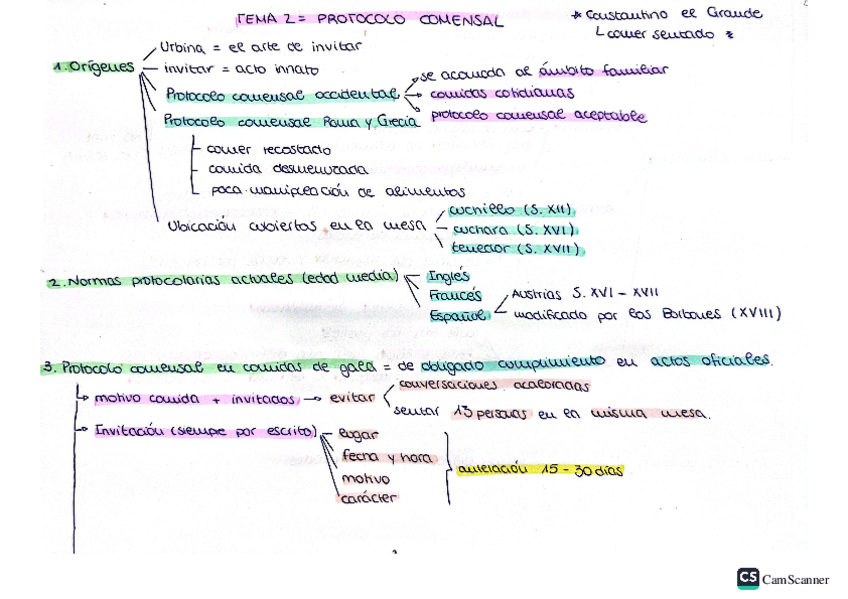 TEMA 2 = PROTOCOLO COMENSAL
* Constantino el Grande
↳ comer sentado *
1. Orígenes
Urbina = el arte de invitar
invitar = acto innato
Protocolo comensal occidental
se acomoda al ámbito familiar
comidas cotidianas
protocolo comensal aceptable
Protocolo comensal Roma y Grecia
comer recostado
comida desmenuzada
poca manipulación de alimentos
Ubicación cubiertos en la mesa
cuchillo (S. XII)
cuchara (S. XVI)
tenedor (S. XVII)
2. Normas protocolarias actuales (edad media)
Inglés
Francés
Español
Austrias S. XVI - XVII
modificado por los Borbones (XVIII)
3. Protocolo comensal en comidas de gala = de obligado cumplimiento en actos oficiales.
↳ motivo comida + invitados → evitar
conversaciones acaloradas
sentar 13 personas en la misma mesa.
↳ Invitación (siempe por escrito)
lugar
fecha y hora
motivo
carácter
antelación 15 - 30 días
CS CamScanner